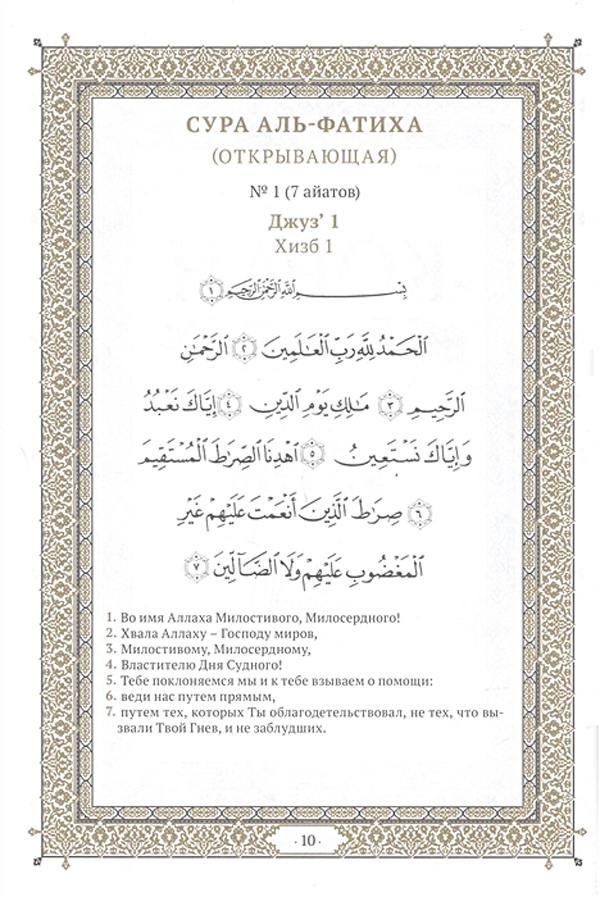 СУРА АЛЬ-ФАТИХА
(ОТКРЫВАЮЩАЯ)
№ 1 (7 айатов)
Джуз’ 1
Хизб 1
بِسْمِ ٱللَّهِ ٱلرَّحْمَٰنِ ٱلرَّحِيمِ ١
ٱلْحَمْدُ لِلَّهِ رَبِّ ٱلْعَٰلَمِينَ ٢ ٱلرَّحْمَٰنِ
ٱلرَّحِيمِ ٣ مَٰلِكِ يَوْمِ ٱلدِّينِ ٤ إِيَّاكَ نَعْبُدُ
وَإِيَّاكَ نَسْتَعِينُ ٥ ٱهْدِنَا ٱلصِّرَٰطَ ٱلْمُسْتَقِيمَ
٦ صِرَٰطَ ٱلَّذِينَ أَنْعَمْتَ عَلَيْهِمْ غَيْرِ
ٱلْمَغْضُوبِ عَلَيْهِمْ وَلَا ٱلضَّآلِّينَ ٧
1. Во имя Аллаха Милостивого, Милосердного!
2. Хвала Аллаху – Господу миров,
3. Милостивому, Милосердному,
4. Властителю Дня Судного!
5. Тебе поклоняемся мы и к тебе взываем о помощи:
6. веди нас путем прямым,
7. путем тех, которых Ты облагодетельствовал, не тех, что вы-
звали Твой Гнев, и не заблудших.
· 10 ·